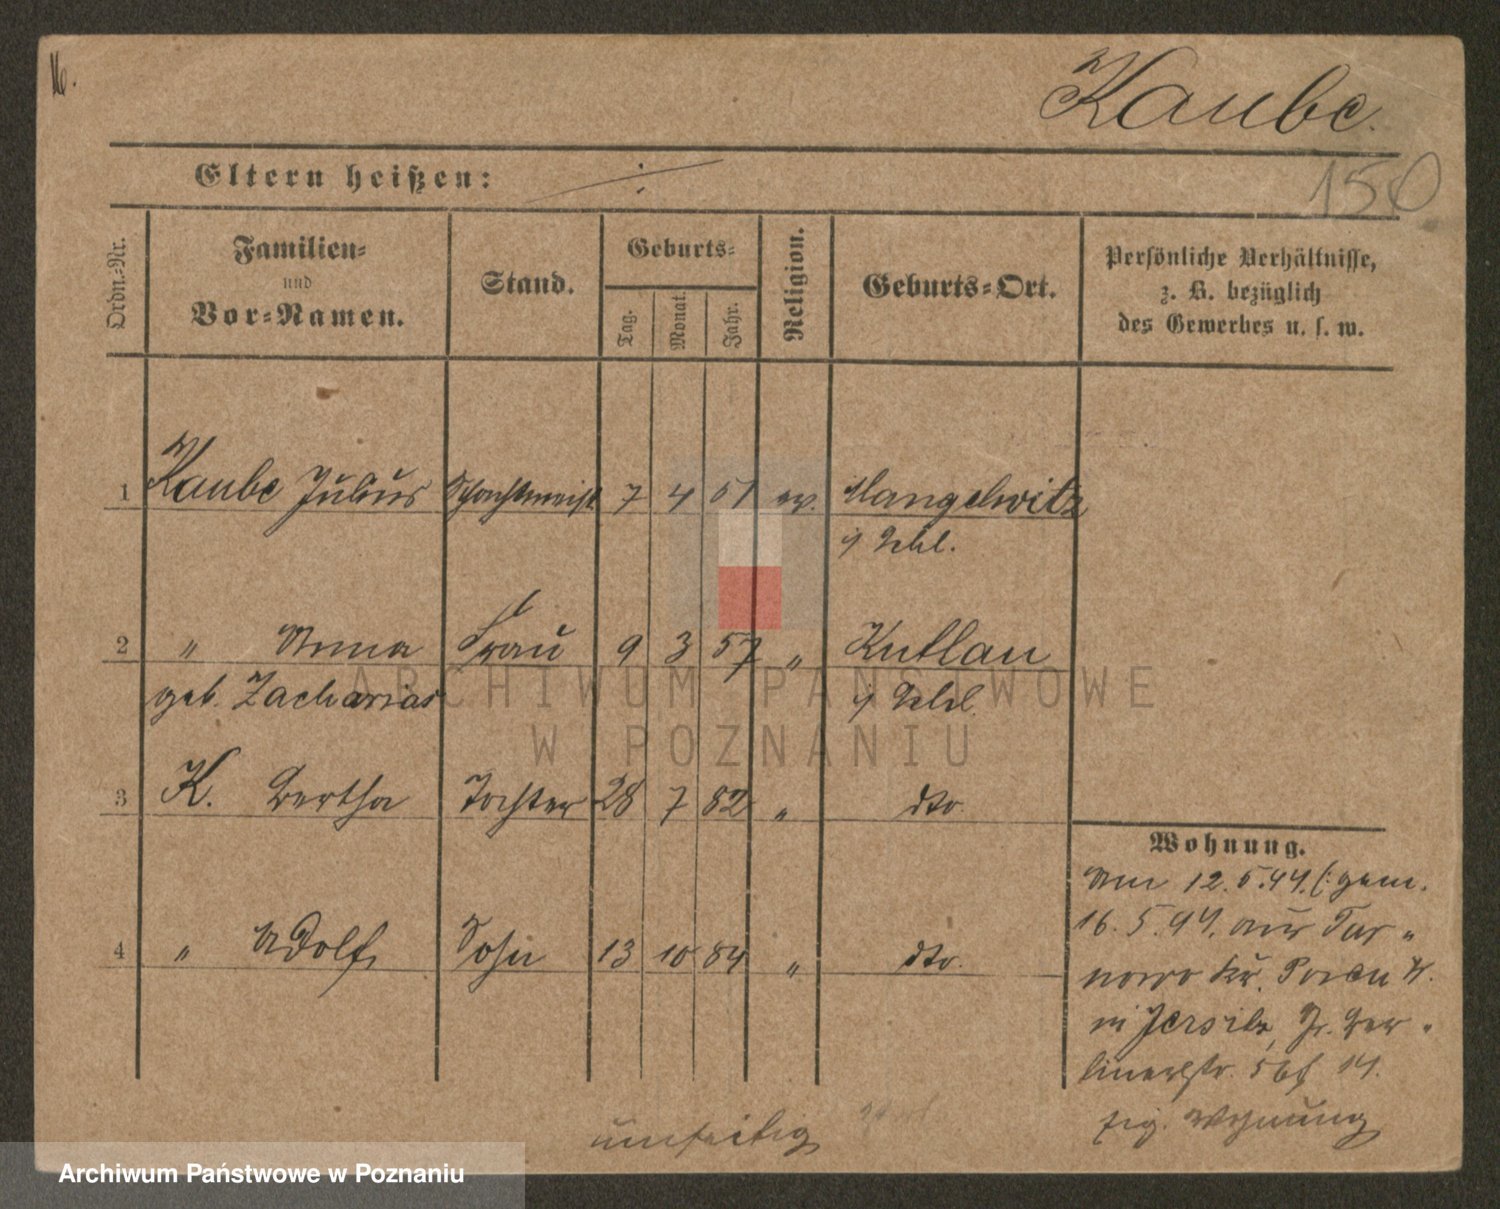 Kaube.
150
Eltern heißen: ÷
Ordn.-Nr. Familien- und Vor-Namen. Stand. Geburts- Tag. Monat. Jahr. Religion. Geburts-Ort. Persönliche Verhältnisse, z. B. bezüglich des Gewerbes u. s. w.
1 Kaube Julius Schachtmeist 7 4 51 ev. Mangelwitz
i/ Schl.
2 " Anna Frau 9 3 57 " Kutlau
geb. Zacharias i/ Schl.
3 K. Bertha Tochter 28 7 82 " dto.
4 " Adolf Sohn 13 10 84 " dto.
Wohnung.
Am 12.5.94. (: gem.
16.5.94. aus Tar-
nowo Kr. Posen W.
in Jersitz, Gr. Ber-
linerstr. 14.
zig. Wohnung
umseitig
ARCHIWUM PAŃSTWOWE
W POZNANIU
Archiwum Państwowe w Poznaniu